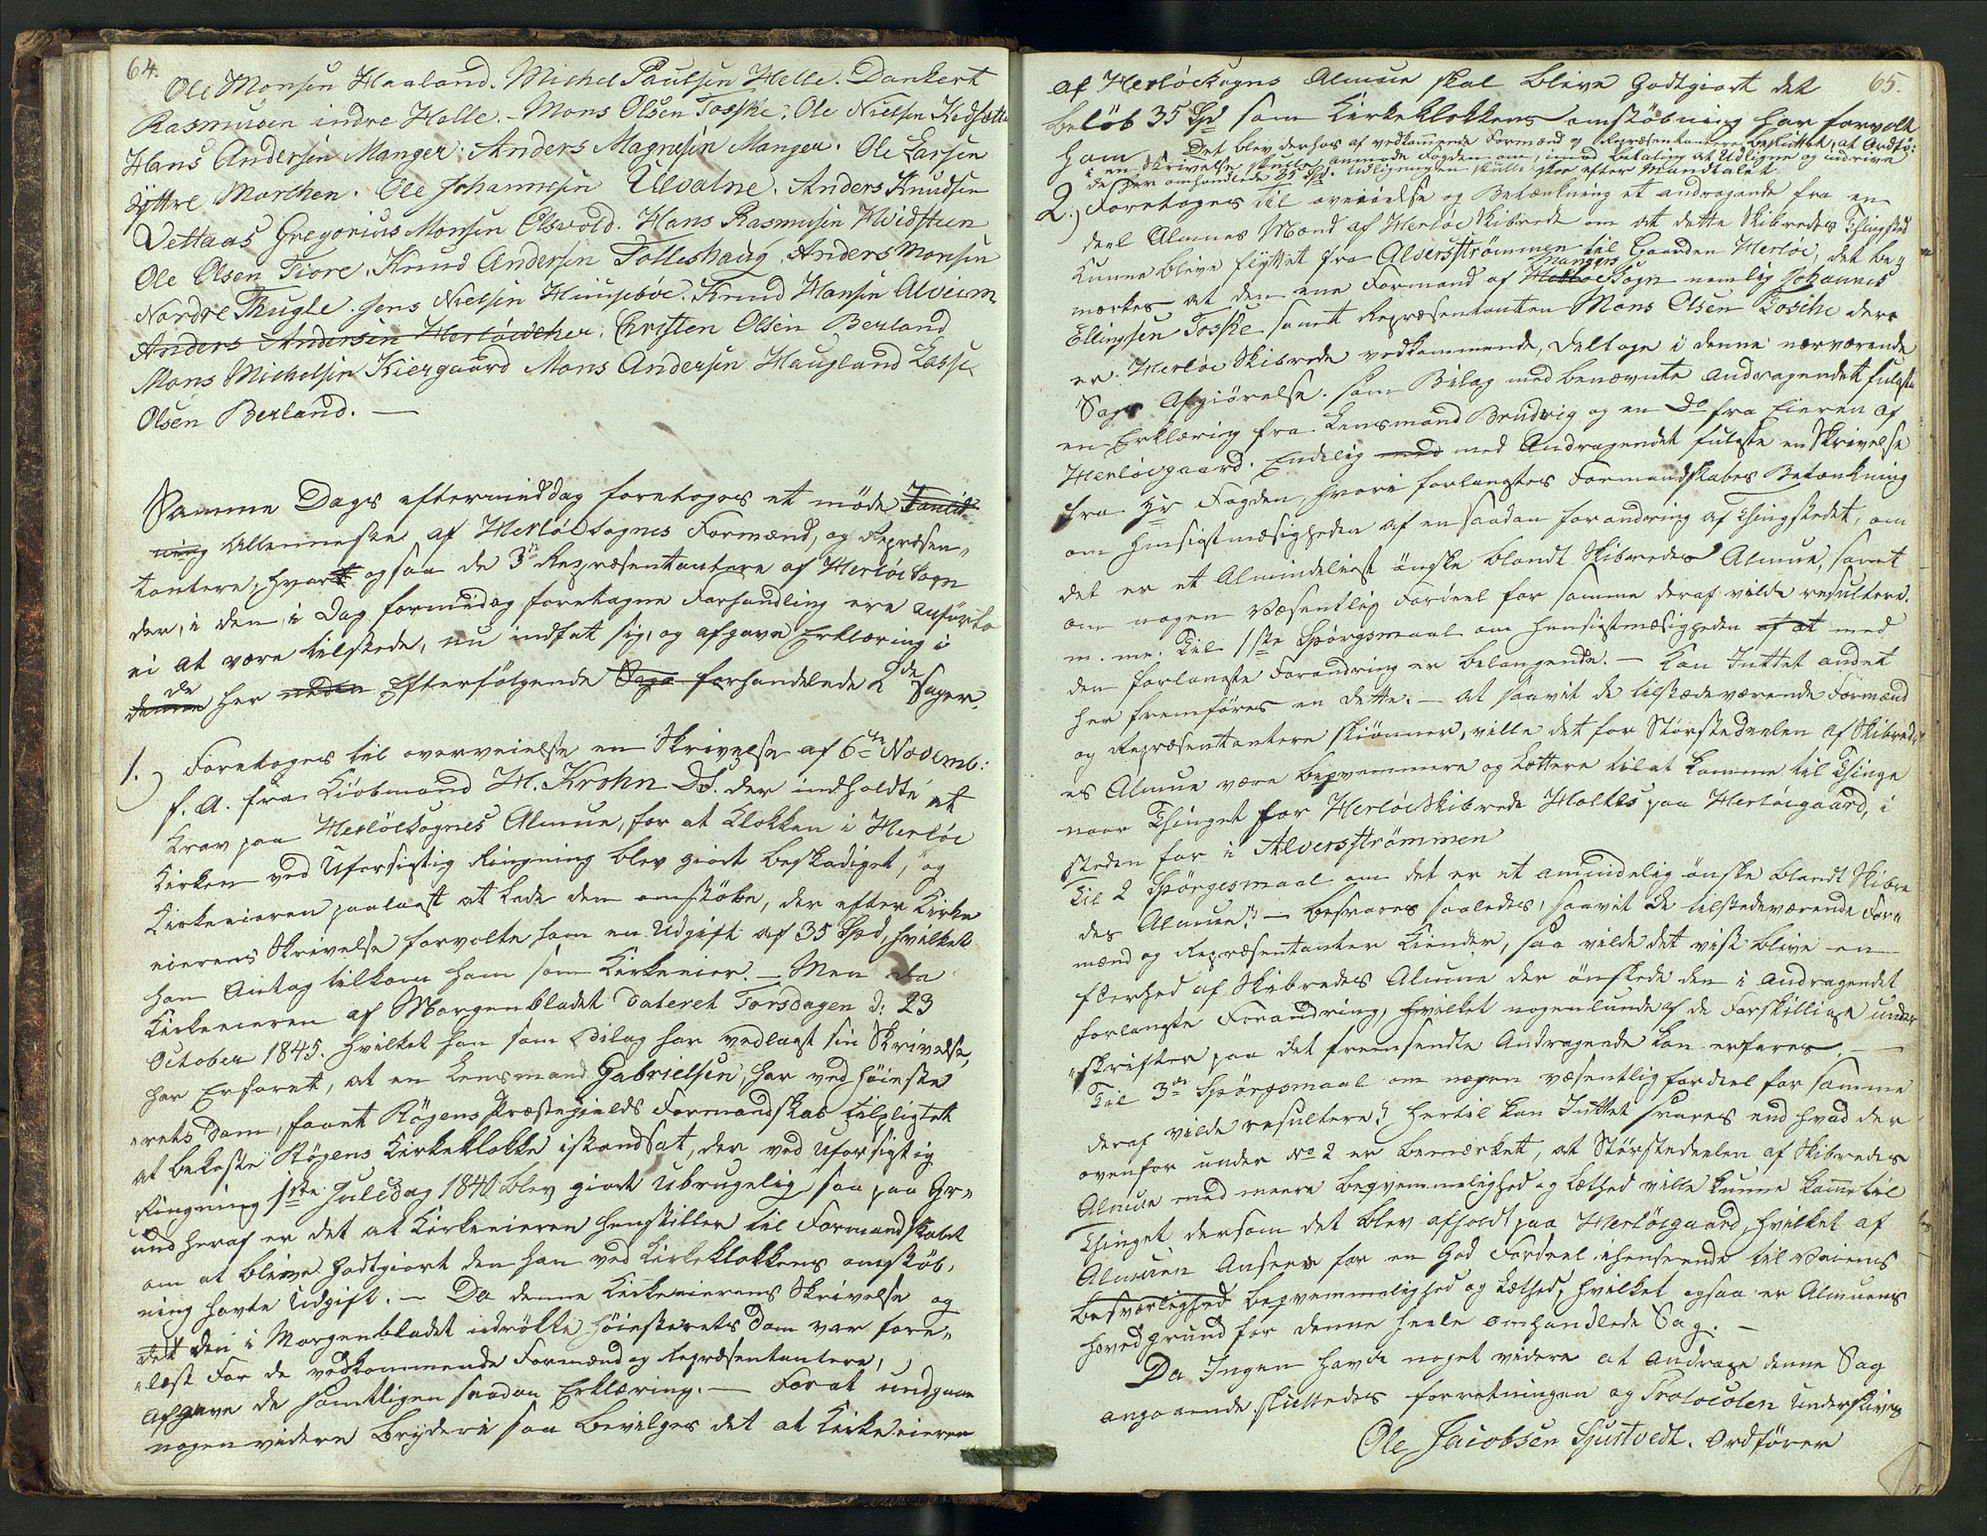 64.
Ole Monsen Haaland. Michel Paulsen Helle. Dankert
Rasmusen indre Helle. Mons Olsen Toske. Ole Nielsen
Hans Andersen Manger. Anders Magnesen Manger. Ole Larsen
Yttre Marøen. Ole Johannesen Ulvatne. Anders Knudsen
Vettaas Gregorius Monsen Olsvold. Hans Rasmusen Hvidsteen
Ole Olsen Fiore. Knud Andersen Tolleshaug. Anders Monsen
Nordre Thugle. Jens Nielsen Huusebøe. Knud Hansen Alveim
Anders Andersen Herløe. Christen Olsen Berland
Mons Michelsen Kiergaard Mons Andersen Haugland Lasse
Olsen Berland. —
Samme Dags eftermiddag foretoges et møde
Allenneste af Herløesognes Formænd, og Repræsen„
tantere, hvor ogsaa de 3de Repræsentantere af Herløe Sogn
der, i den, i Dag formiddag foretagne Forhandling ere anførte
ei at være tilstede, nu indfat sig, og afgave Erklæring i
de
denne her neden Efterfølgende Sage forhandlede 2de Sager.
1.) Foretoges til overveielse en Skrivelse af 6te Novemb:
f. A. fra Kiøbmand H. Krohn DS. der indholdte et
Krav paa Herløesognes Almue, for at Klokken i Herløe
Kirken ved Uforsigtig Ringning blev giort beskadiget, og
Kirkeeieren paalagt at lade den omstøbe, der efter Kirke
eierens Skrivelse forvolte ham en Udgift af 35 Spd, hvilket
han Antog tilkom ham som Kirkeeier. — Men da
Kirkeeieren af Morgenbladet dateret Torsdagen d: 23
October 1845. hvilket han som Bilag har vedlagt sin Skrivelse,
har Erfaret, at en Lensmand Gabrielsen, har ved høieste
„rets Dom, faaet Røgens Præstegjelds Formandskab tilpligtet
at bekoste Røgens Kirkeklokke istandsat, der ved Uforsigtig
Ringning 1ste Juledag 1840 blev giort ubrugelig, saa paa Gr„
und heraf er det at Kirkeeieren henstiller til Formandskabet
om at blive Godtgiort den han ved Kirkeklokkens omstøb„
ning havte Udgift. — Da denne Kirkeeierens Skrivelse og
det den i Morgenbladet indrøkte Høiesterets Dom var fore„
„læst For de vedkommende Formænd og Repræsentantere,
Afgave de samtligen saadan Erklæring. — For at undgaae
nogen videre Bryderi saa bevilges det at Kirkeeieren
65.
af Herløesogns Almue skal blive Godtgiort det
beløb 35 Spd som Kirkeklokkens omstøbning har forvolt
ham. Det blev derhos af vedkommende Formænd og Repræsentantere besluttet, at Ordfø:
i en Skrivelse skulle anmode Fogden om, imod betaling at Udligne og inddrive
de her omhandlede 35 Spd. Udligningen skulle skee efter Mandtalet
2.) Foretoges til overveielse og Betænkning et andragende fra en
deel Almues Mænd af Herløe Skibrede om at dette Skibredes Thingsted
kunne blive flyttet fra Alversstrømmen til Gaarden Herløe, det be„
Mangers
mærkes at den ene Formand af Herløe Sogn nemlig Johannes
Ellingsen Toske samt Repræsentanten Mons Olsen Toske der
er Herløe Skibrede vedkommende, deltoge i denne nærværende
Sags Afgiørelse. Som Bilag med benævnte andragendet fulgte
en Erklæring fra Lensmand Brudvig og en Do fra Eieren af
Herløegaard. Endelig med med Andragendet fulgte en Skrivelse
fra Hr Fogden, hvori forlangtes Formandskabes Betænkning
om Hensigtmæsigheden af en saadan forandring af Thingstedet, om
det er et Almindeligt ønske blandt Skibredes Almue, samt
om nogen væsentlig Fordeel for samme deraf vilde resultere.
m. m. Til 1ste Spørgsmaal om Hensigtmæsigheden af at med
den forlangte Forandring er belangende. — Kan Intet andet
her fremføres en dette. — at saavit de tilstædeværende Formænd
og Repræsentantere skiønner, ville det for Størstedeelen af Skibred„
es Almue være beqvemmere og Lettere til at komme til Thinge
naar Thinget for Herløe Skibrede Holtes paa Herløegaard, i
steden for i Alversstrømmen
Til 2 Spørgsmaal om det er et amindelig ønske blandt Skibre
des Almue? — besvares saaledes, saavit de tilstedeværende For„
mænd og Repræsentanter kiender, saa vilde det vist blive en
fleerhed af Skibredes Almue der ønskede den i Andragendet
forlangte Forandring, hvilket nogenlunde af de Forskillige under
„skrifter paa det fremsendte Andragende kan erfares. —
Til 3de Spørgsmaal om nogen væsentlig fordeel for samme
deraf vilde resultere? hertil kan Intet svares end hvad der
ovenfor under No 2 er bemærket, at Størstedeelen af Skibredes
Almue med meere beqvemmelighed og Lethed ville kunne komme til
Thinget dersom det blev afholdt paa Herløegaard, hvilket af
Almuen Ansees for en God Fordeel ihenseende til Veiens
besværlighed beqvemmelighed og Lethed, hvilket ogsaa er Almuens
hovedgrund for denne heele omhandlede Sag. —
Da Ingen havde noget videre at Andrage denne Sag
angaaende sluttedes forretningen og Protocolen Underskives
Ole Jacobsen Sjustvedt. Ordfører